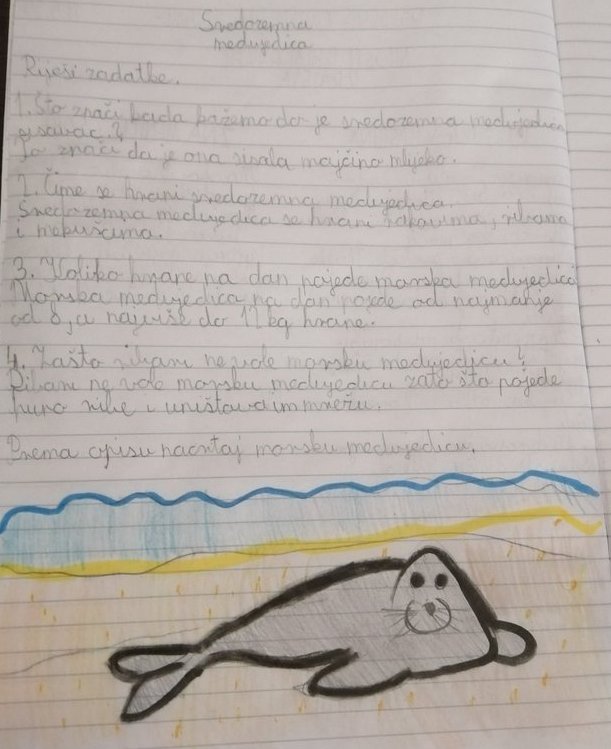 Sredozemna
medvjedica
Riješi zadatke.
1. Što znači kada kažemo da je sredozemna medvjedica
sisavac?
To znači da je ona sisala majčino mlijeko.
2. Čime se hrani sredozemna medvjedica.
Sredozemna medvjedica se hrani rakovima, ribama
i mekušcima.
3. Koliko hrane na dan pojede morska medvjedica?
Morska medvjedica na dan pojede od najmanje
od 8, a najviše do 12 kg hrane.
4. Zašto ribari ne vole morsku medvjedicu?
Ribari ne vole morsku medvjedicu zato što pojede
puno ribe i uništava im mrežu.
Prema opisu nacrtaj morsku medvjedicu.